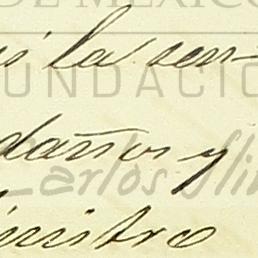 DE MÉXICO
si la sen-
FUNDACIÓ
daños y
Carlos Slim
inistro